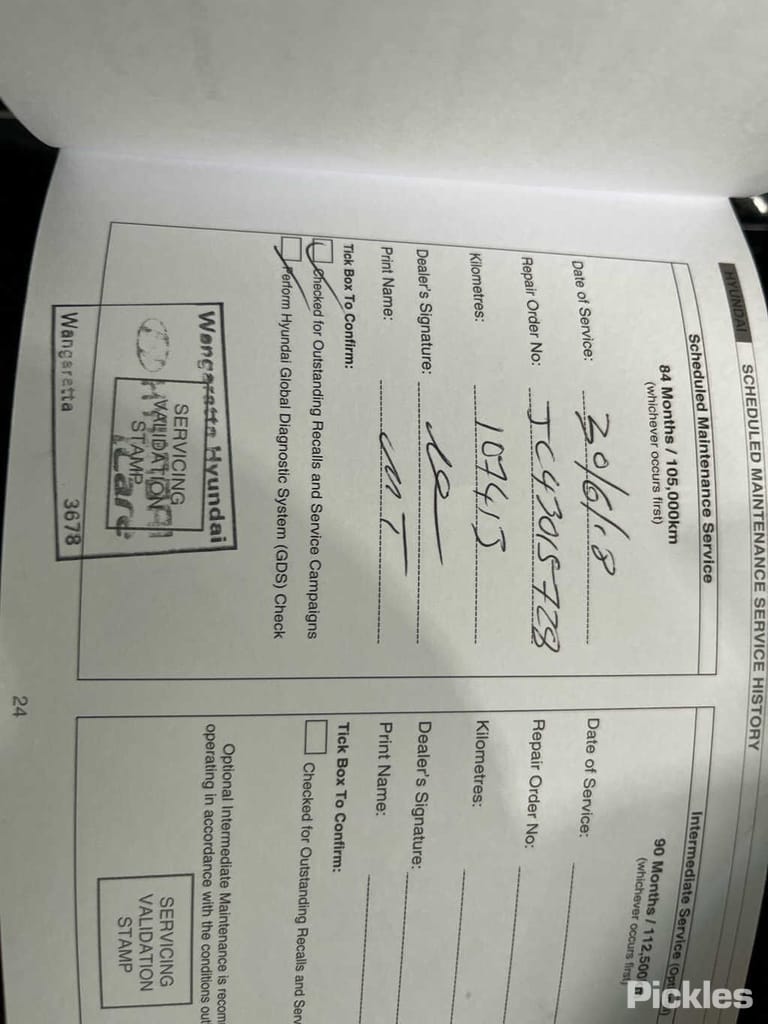 HYUNDAI
SCHEDULED MAINTENANCE SERVICE HISTORY
Scheduled Maintenance Service
84 Months / 105,000km
(whichever occurs first)
Date of Service: 30/6/18
Repair Order No: JC43015728
Kilometres: 107413
Dealer's Signature:
Print Name:
Tick Box To Confirm:
Checked for Outstanding Recalls and Service Campaigns
Perform Hyundai Global Diagnostic System (GDS) Check
Wangaratta Hyundai
SERVICING
VALIDATION
STAMP
iCare
Wangaratta 3678
Intermediate Service
90 Months / 112,500
(whichever occurs first)
Date of Service:
Repair Order No:
Kilometres:
Dealer's Signature:
Print Name:
Tick Box To Confirm:
Checked for Outstanding Recalls and Serv
Optional Intermediate Maintenance is recom
operating in accordance with the conditions out
SERVICING
VALIDATION
STAMP
24
Pickles